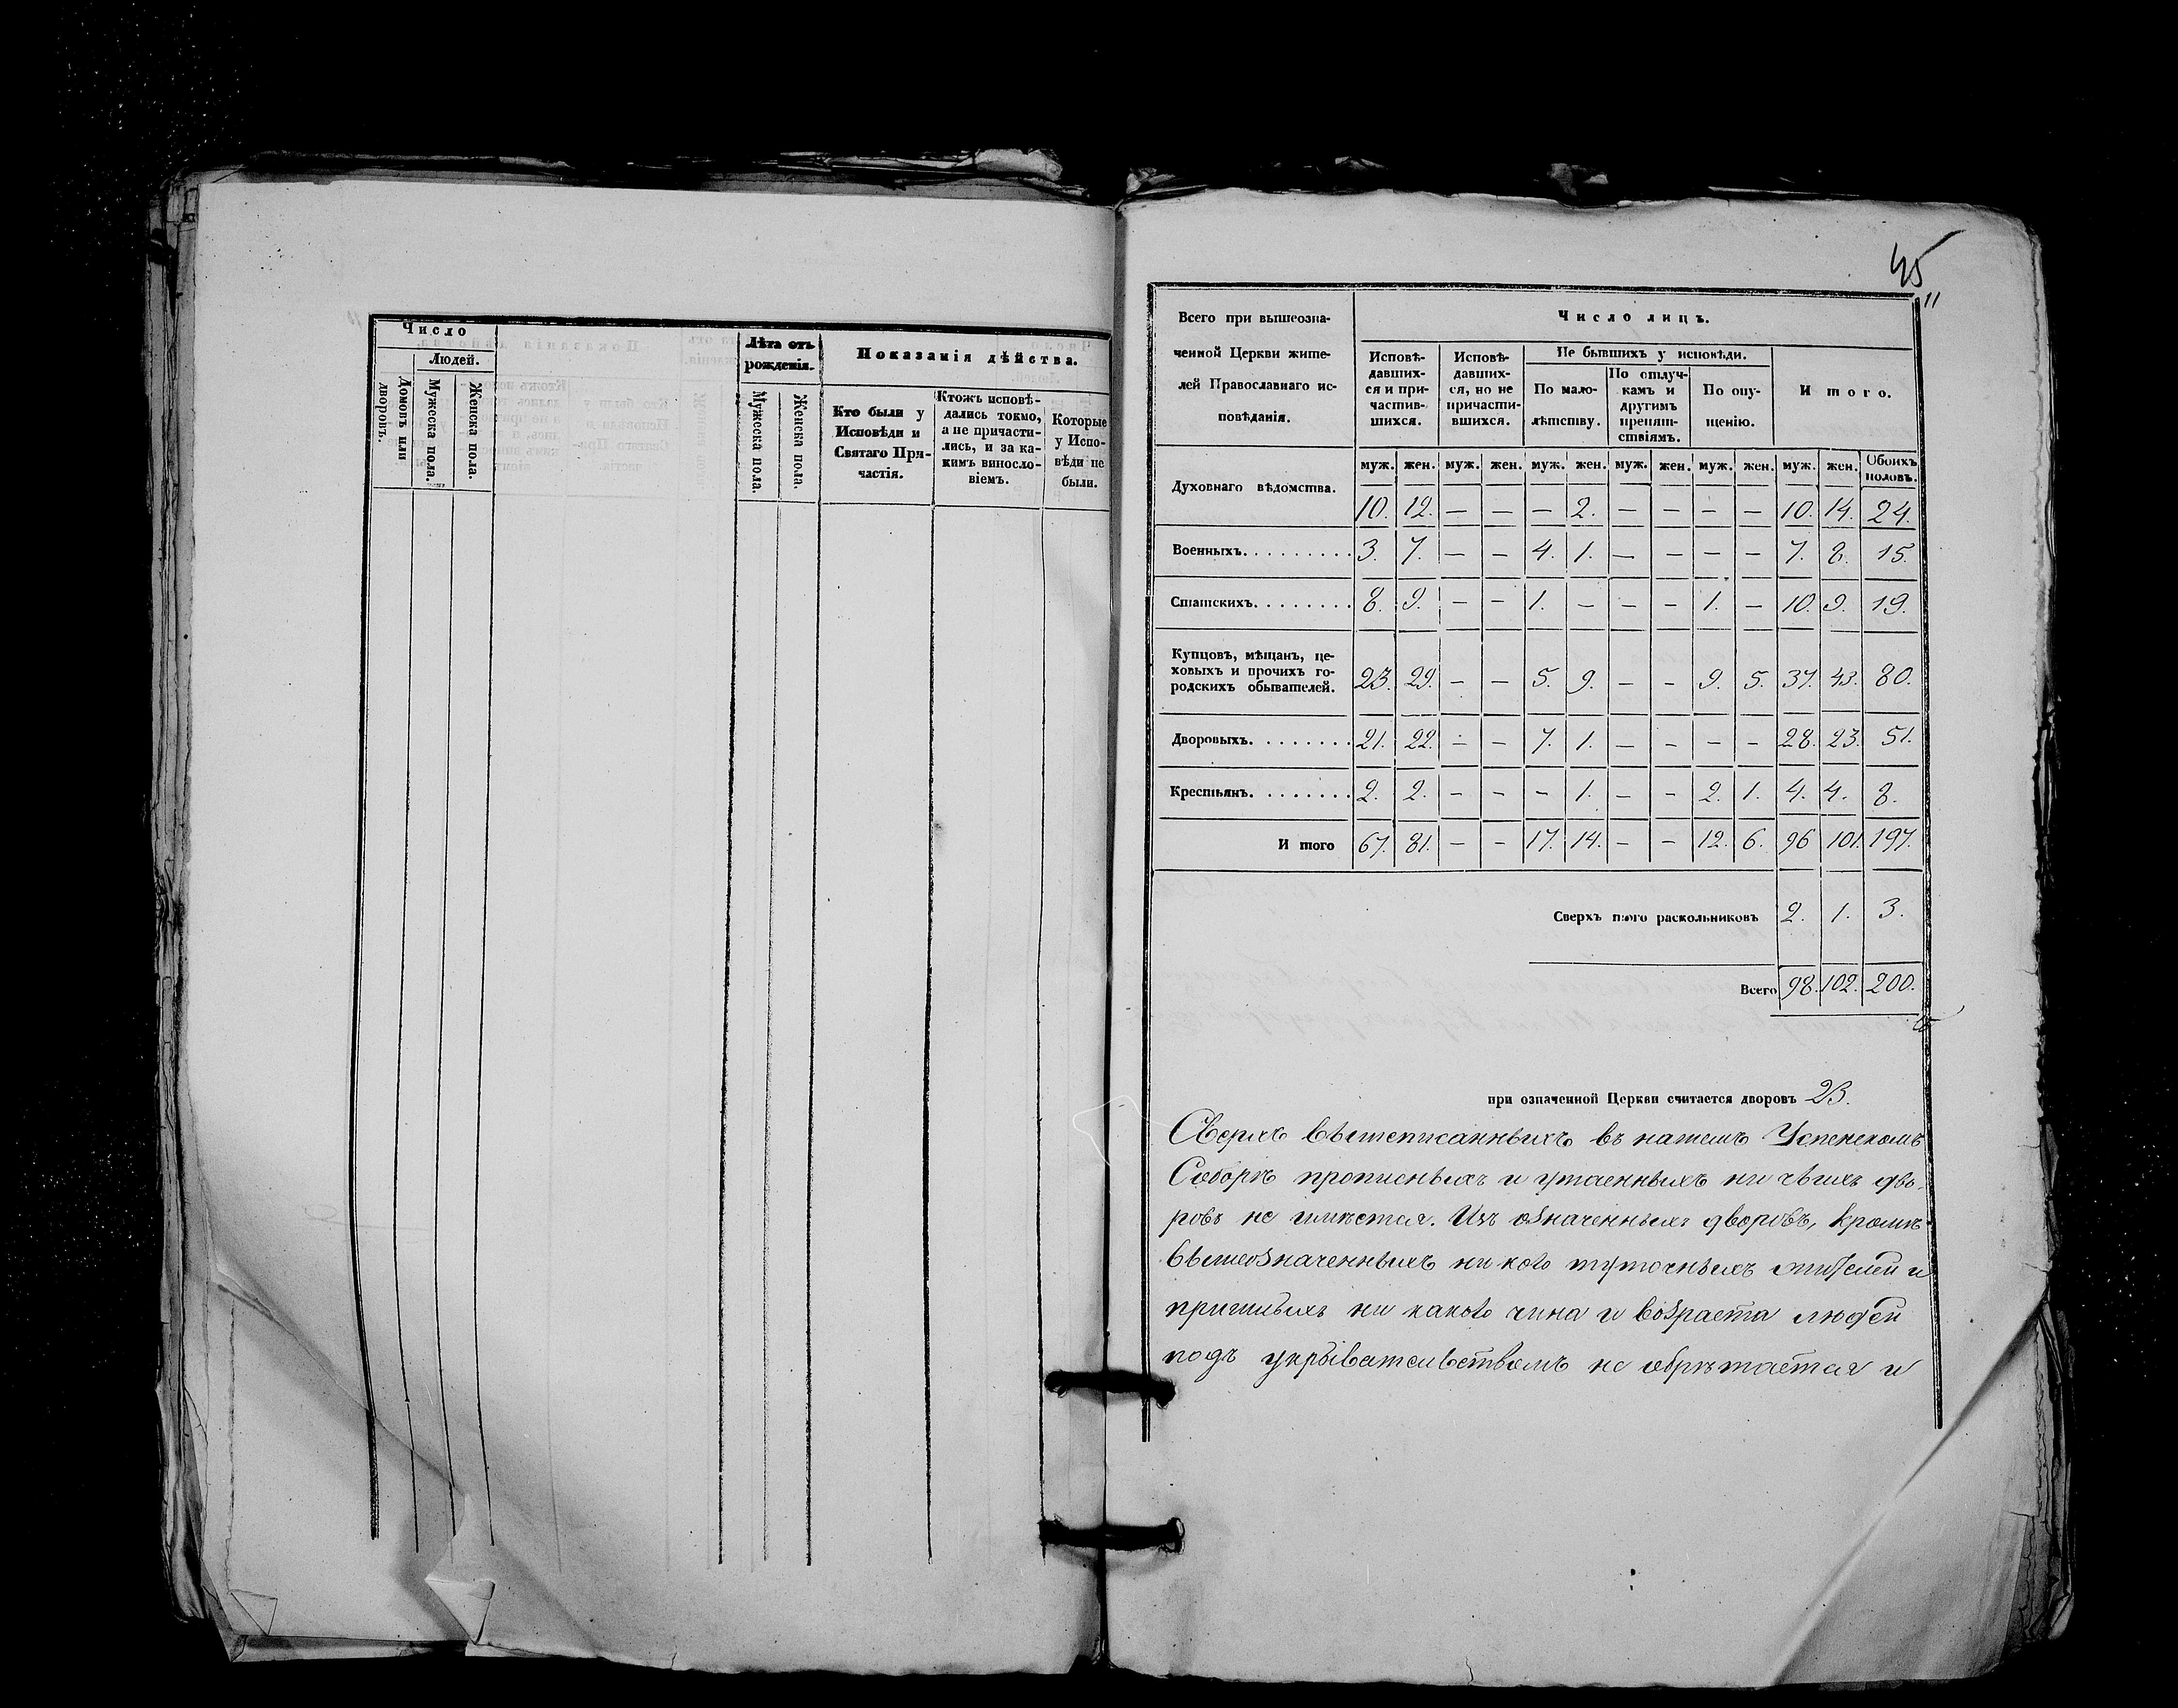 Число
Людей.
Домовъ или дворовъ.
Мужеска пола.
Женска пола.
Лѣта отъ рожденія.
Мужеска пола.
Женска пола.
Показанія дѣйства.
Кто были у
Исповѣди и
Святаго При-
частія.
Ктожъ исповѣ-
дались токмо,
а не причасти-
лись, и за ка-
кимъ виносло-
віемъ.
Которые
у Испо-
вѣди не
были.
45
11
Всего при вышеозна-
ченной Церкви жите-
лей Православнаго ис-
повѣданія.
Число лицъ.
Исповѣ-
давших-
ся и при-
частив-
шихся.
Исповѣ-
давших-
ся, но не
причасти-
вшихся.
Не бывшихъ у исповѣди.
По мало-
лѣтству.
По отлуч-
камъ и
другимъ
препят-
ствіямъ.
По опу-
щенію.
Итого.
муж. жен. муж. жен. муж. жен. муж. жен. муж. жен. муж. жен. Обоихъ половъ.
Духовнаго вѣдомства. 10. 12. — — — 2. — — — — 10. 14. 24.
Военныхъ. . . . . . . . . 3. 7. — — 4. 1. — — — — 7. 8. 15.
Статскихъ. . . . . . . . 8. 9. — — 1. — — — 1. — 10. 9. 19.
Купцовъ, мѣщанъ, це-
ховыхъ и прочихъ го-
родскихъ обывателей. 23. 29. — — 5. 9. — — 9. 5. 37. 43. 80.
Дворовыхъ. . . . . . . . 21. 22. — — 7. 1. — — — — 28. 23. 51.
Крестьянъ. . . . . . . . 2. 2. — — — 1. — — 2. 1. 4. 4. 8.
Итого 67. 81. — — 17. 14. — — 12. 6. 96 101. 197.
Сверхъ того раскольниковъ 2. 1. 3.
Всего 98. 102. 200.
при означенной Церкви считается дворовъ 23.
Сверхъ вышеписанныхъ въ нашемъ Успенскомъ
Соборѣ прописныхъ и утаенныхъ ни чьихъ дво-
ровъ не имѣется. Изъ означенныхъ дворовъ, кромѣ
вышеозначенныхъ ни кого туточныхъ жителей и
пришлыхъ ни какого чина и возраста людей
подъ укрывательствомъ не обрѣтается и